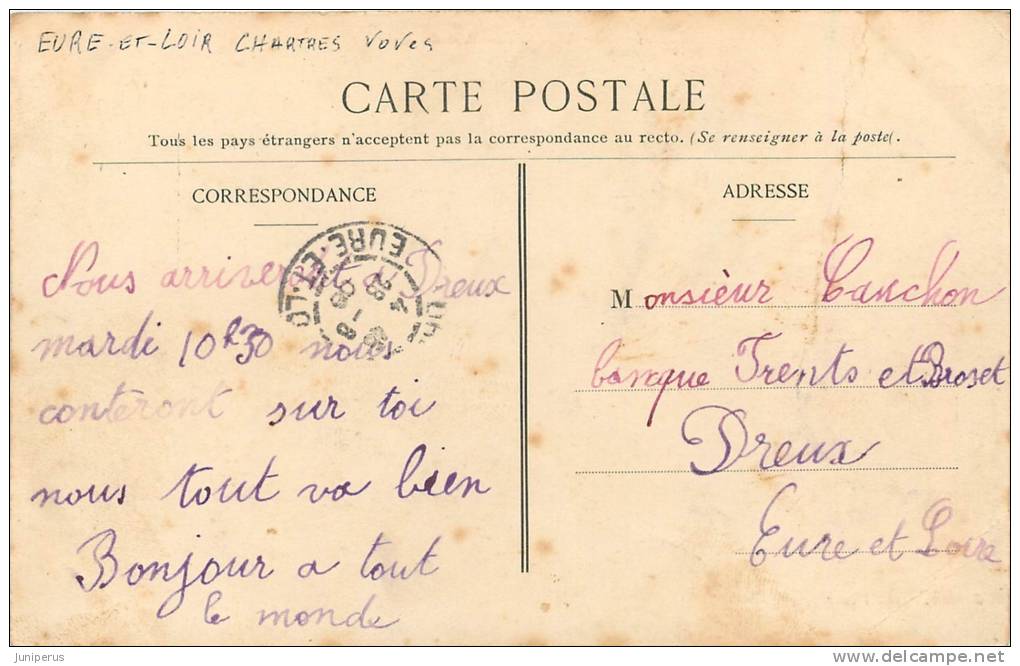 EURE-ET-LOIR CHARTRES VOVES
CARTE POSTALE
Tous les pays étrangers n'acceptent pas la correspondance au recto. (Se renseigner à la poste(.
CORRESPONDANCE
Nous arriveront a Dreux
mardi 10h30 nous
conteront sur toi
nous tout va bien
Bonjour a tout
le monde
EURE-ET-LOIR
ADRESSE
Monsieur Cauchon
banque Trents et Broset
Dreux
Eure et Loire
juniperus
delcampe.net